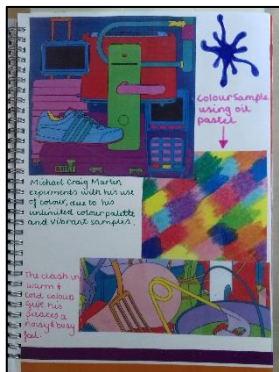 Colour Sample
using oil
pastel
Michael Craig Martin
experiments with his use
of colour, due to his
unlimited colour palette
and vibrant samples.
The clash in
warm &
cold colours
give his
pieces a
noisy & busy
feel.